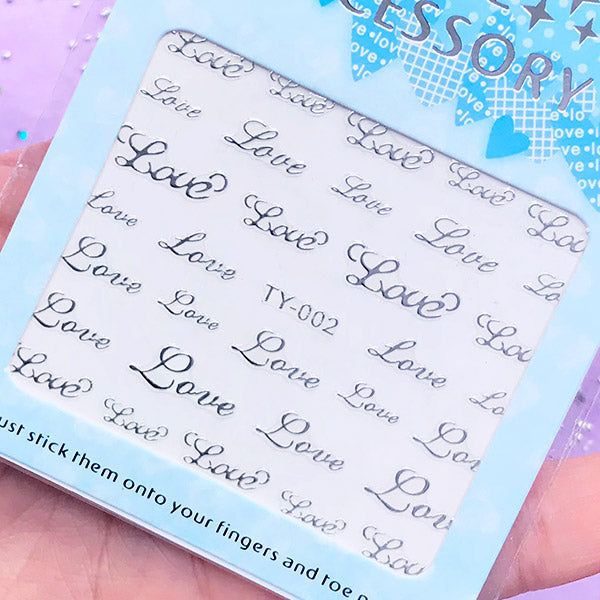 CESSORY
•love•
love•lo
e•lo
ove•
•lo
Love Love Love Love Lov
Love Love Love Love Love
Love Love Love Lov
Love Love TY-002 Love Lo
Love Love Love Love Lov
Love Love Love Lov
Love Love Love Love Love
ust stick them onto your fingers and toe